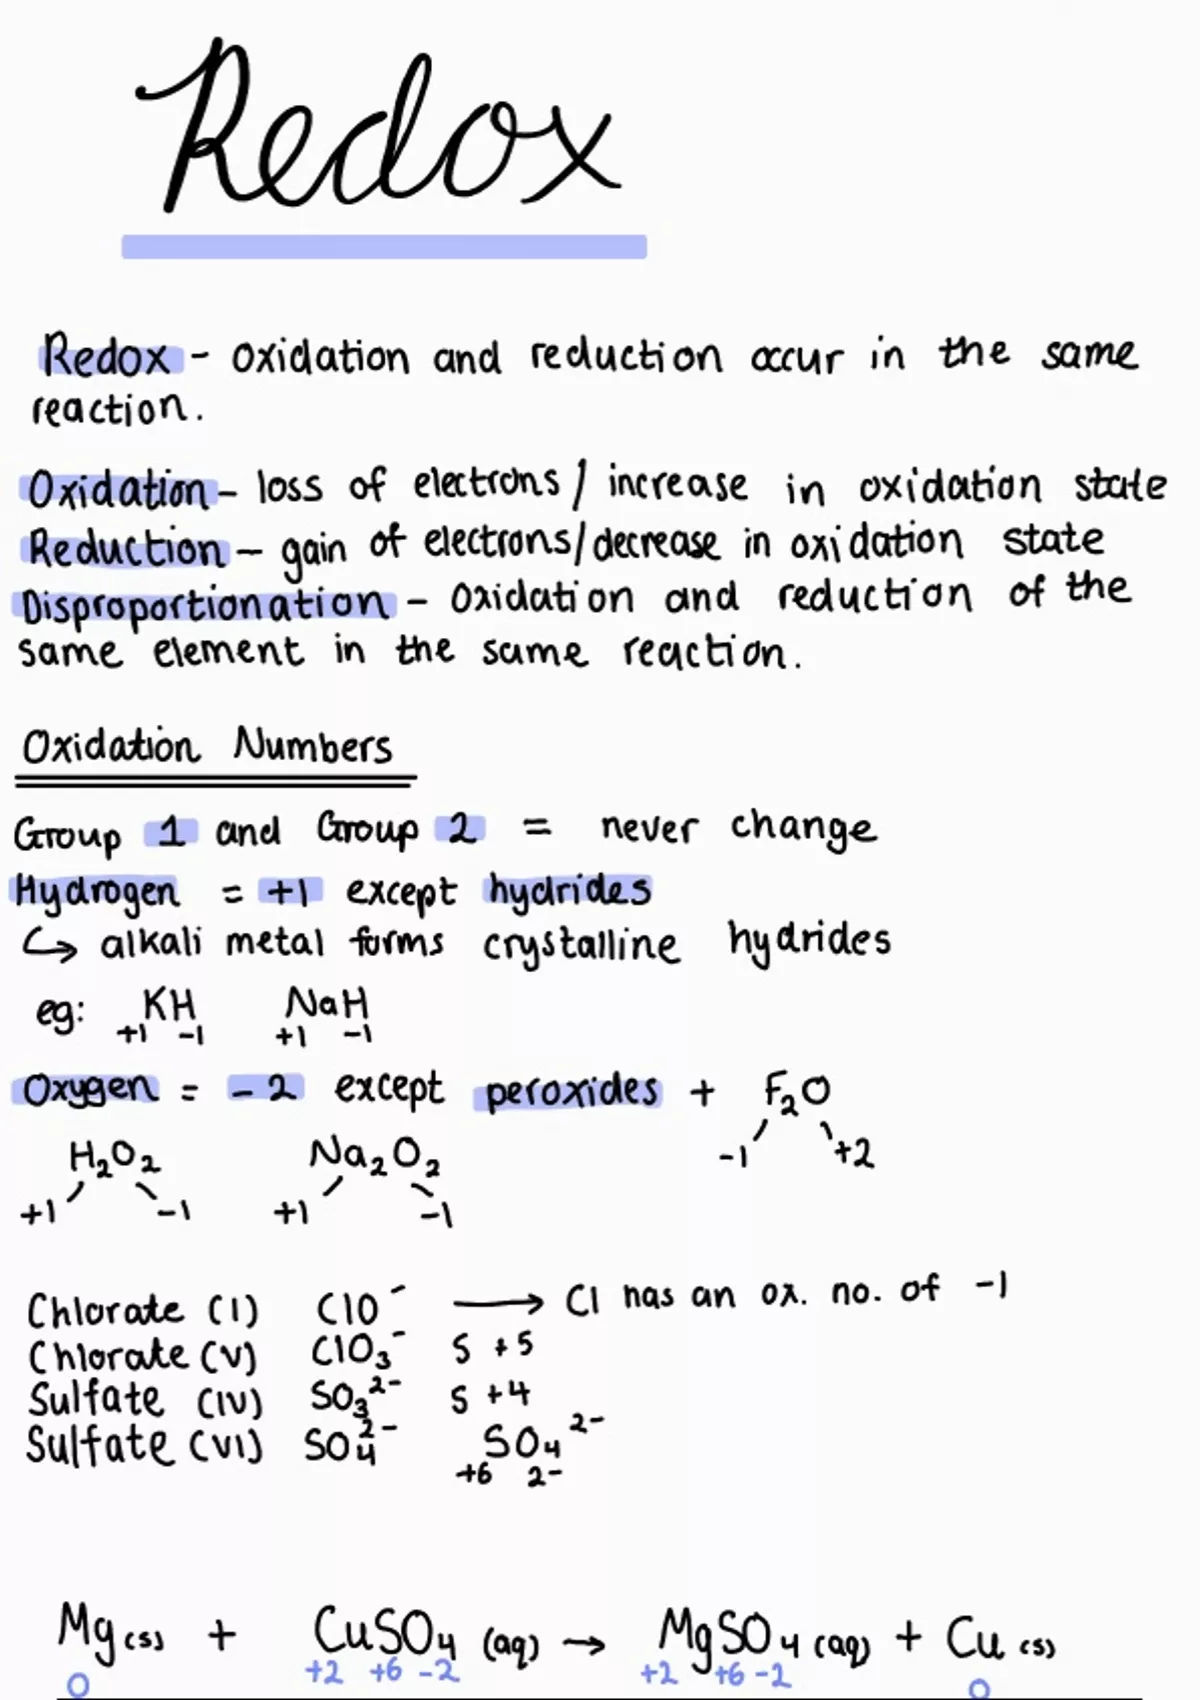 Redox
Redox - oxidation and reduction occur in the same
reaction.
Oxidation - loss of electrons / increase in oxidation state
Reduction - gain of electrons/decrease in oxidation state
Disproportionation - oxidation and reduction of the
same element in the same reaction.
Oxidation Numbers
Group 1 and Group 2 = never change
Hydrogen = +1 except hydrides
↳ alkali metal forms crystalline hydrides
eg: KH NaH
+1 -1 +1 -1
Oxygen = -2 except peroxides + F₂O
-1 +2
H₂O₂ Na₂O₂
+1 -1 +1 -1
Chlorate (I) ClO⁻ → Cl has an ox. no. of -1
Chlorate (V) ClO₃⁻ S +5
Sulfate (IV) SO₃²⁻ S +4
Sulfate (VI) SO₄²⁻ SO₄²⁻
+6 2-
Mg(s) + CuSO₄ (aq) → MgSO₄ (aq) + Cu (s)
0 +2 +6 -2 +2 +6 -2 0